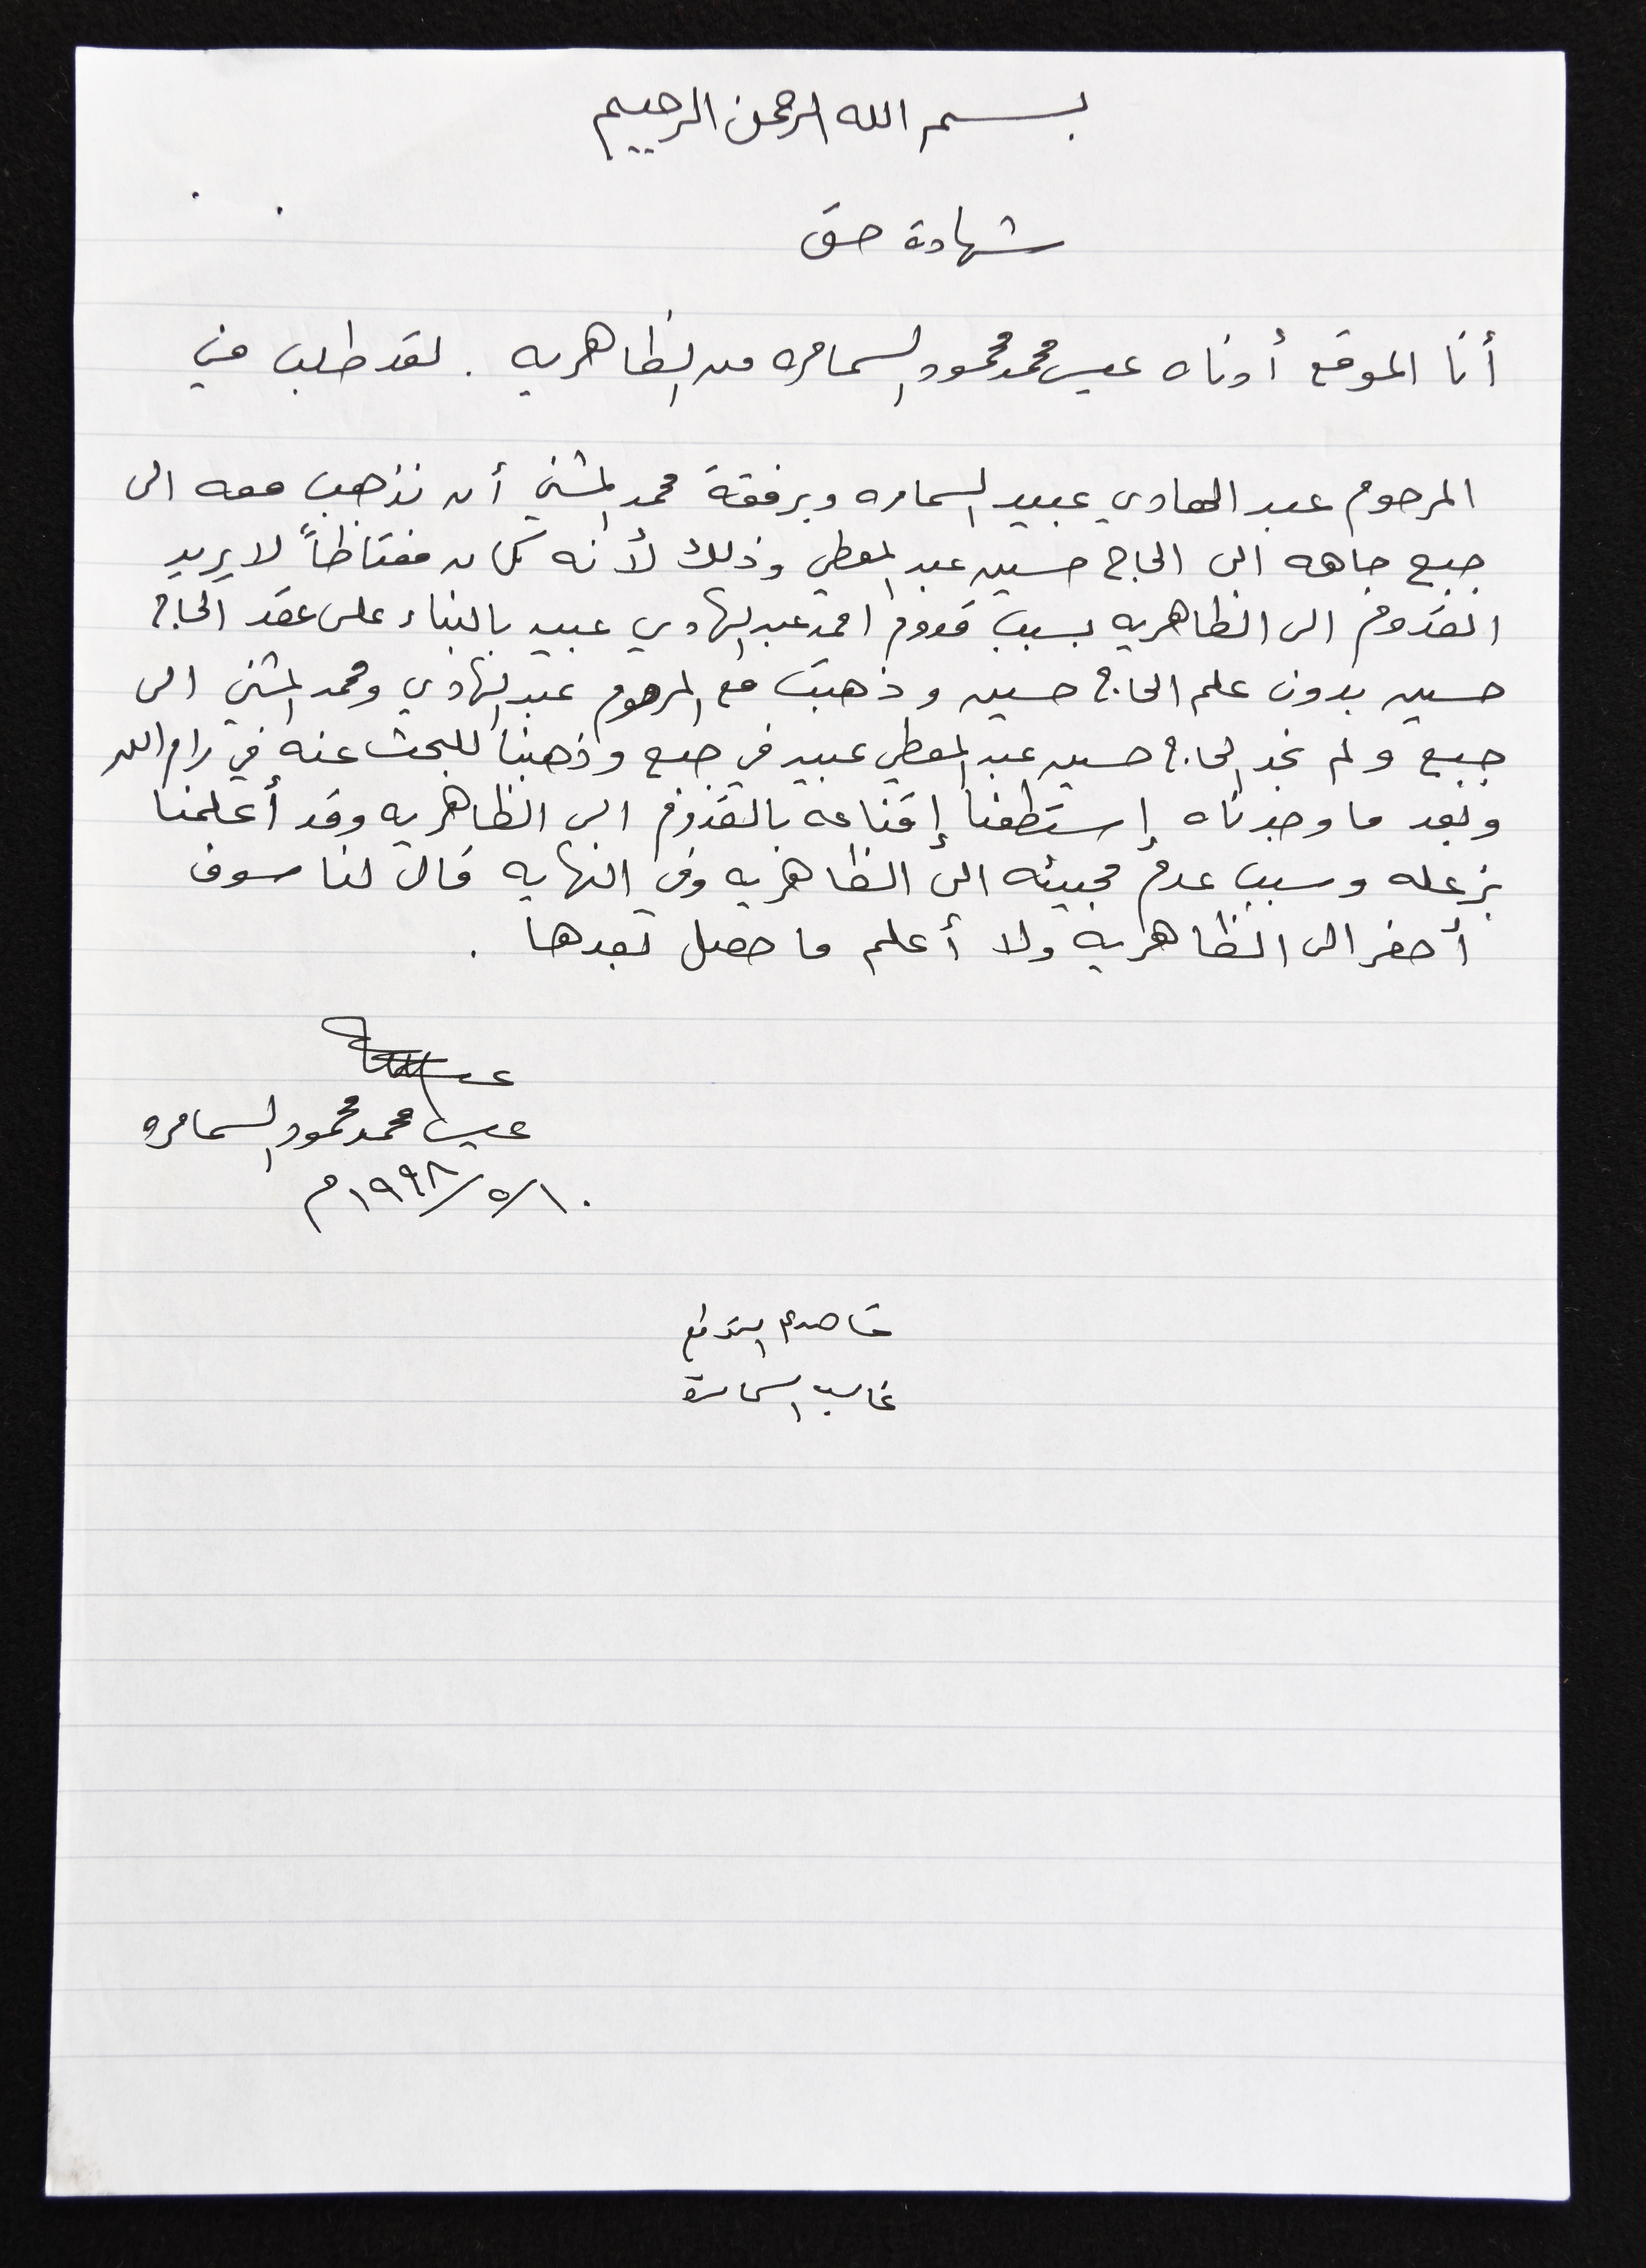 بسم الله الرحمن الرحيم
شهادة حق
أنا الموقع أدناه عيسى محمد محمود السمامره من الظاهريه . لقد طلب مني
المرحوم عبد الهادي عبيد السمامره وبرفقة محمد المثني أن نذهب معه الى
جبع جاهه الى الحاج حسين عبد المعطي وذلك لأنه كان مغتاظاً لا يريد
القدوم الى الظاهريه بسبب قدوم احمد عبد الهادي عبيد بالبناء على عقد الحاج
حسين بدون علم الحاج حسين وذهبت مع المرحوم عبد الهادي ومحمد المثني الى
جبع ولم نجد الحاج حسين عبد المعطي عبيد في جبع وذهبنا للبحث عنه في رام الله
وبعد ما وجدناه إستطعنا إقناعه بالقدوم الى الظاهريه وقد أعلمنا
بزعله وسبب عدم مجيئه الى الظاهريه وفي النهايه قال لنا سوف
أحضر الى الظاهريه ولا أعلم ما حصل بعدها .
عيسى محمد محمود السمامره
١٠/٥/١٩٩٨م
التوقيع
غالب السمامرة